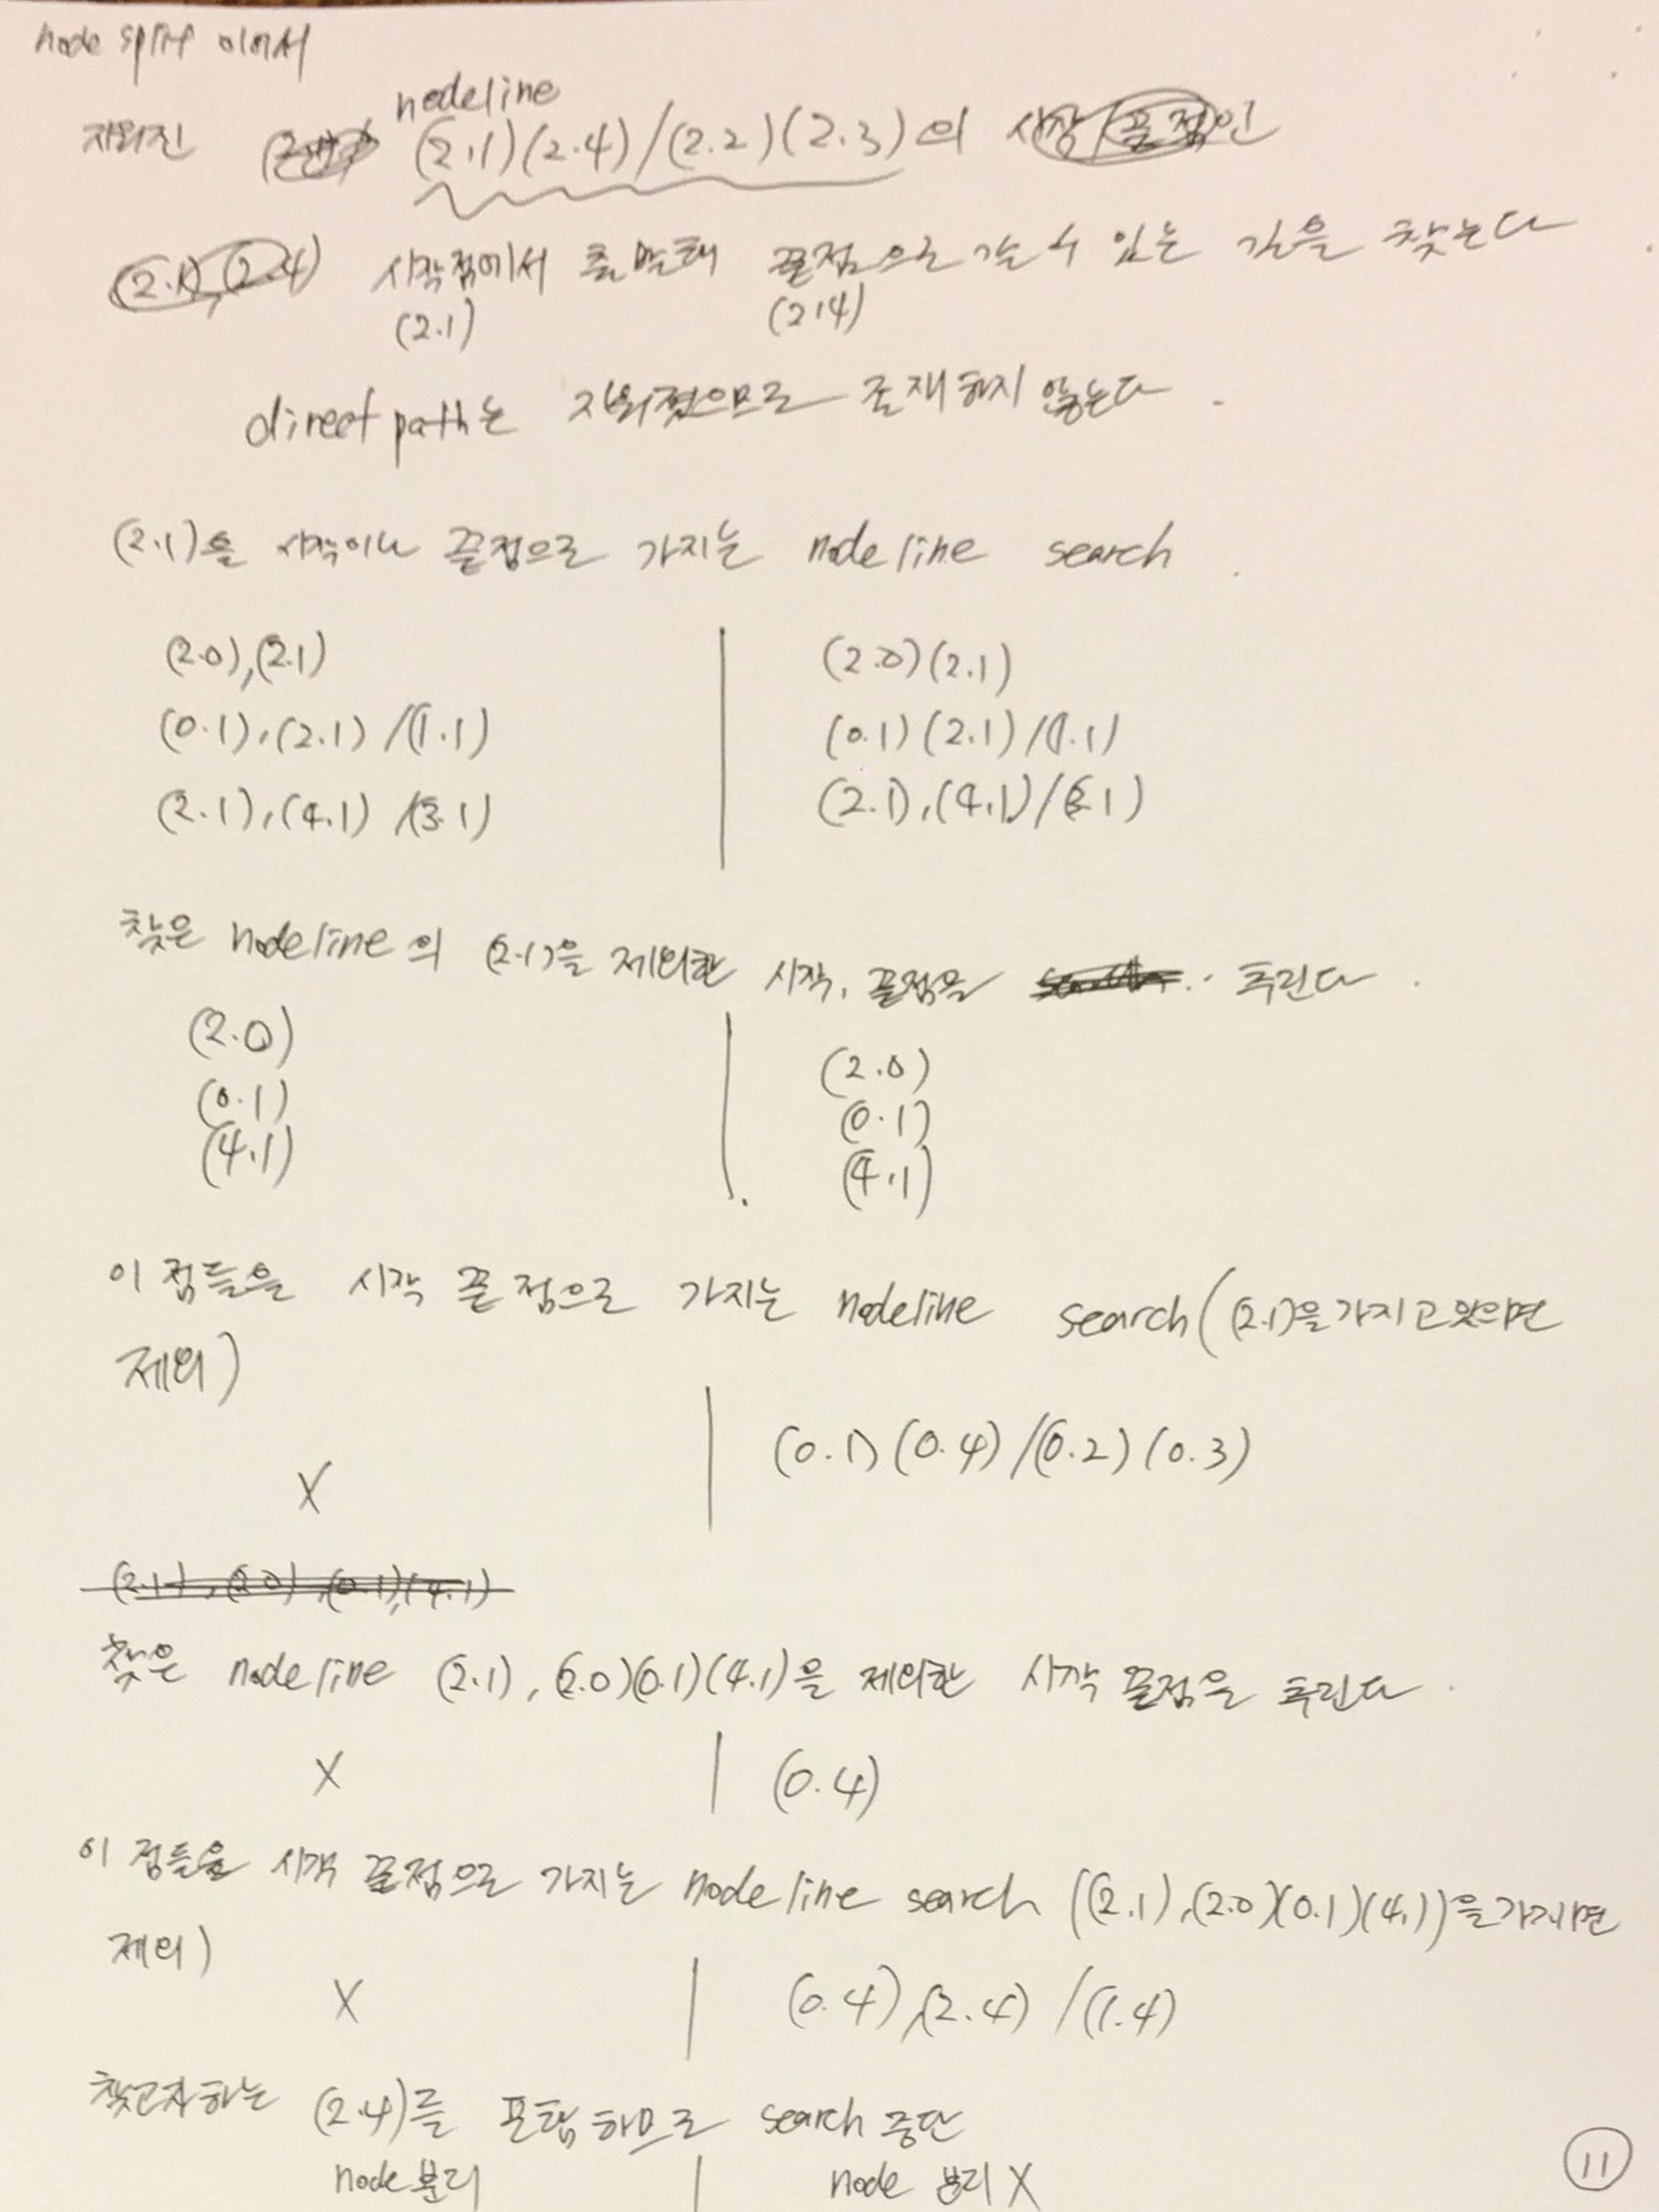 node split 이어서
nodeline
지워진 (2.1)(2.4)/(2.2)(2.3)의 시작/끝점인
(2.1),(2.4) 시작점에서 출발해 끝점으로 갈 수 있는 길을 찾는다
(2.1) (2.4)
direct path는 지워졌으므로 존재하지 않는다.
(2.1)을 시작이나 끝점으로 가지는 nodeline search.
(2.0),(2.1) | (2.0)(2.1)
(0.1),(2.1)/(1.1) | (0.1)(2.1)/(1.1)
(2.1),(4.1)/(3.1) | (2.1),(4.1)/(3.1)
찾은 nodeline의 (2.1)을 제외한 시작, 끝점을 추린다.
(2.0) | (2.0)
(0.1) | (0.1)
(4.1) | (4.1)
이 점들을 시작 끝점으로 가지는 nodeline search((2.1)을 가지고 있으면
제외)
X | (0.1)(0.4)/(0.2)(0.3)
(2.1),(2.0),(0.1),(4.1)
찾은 nodeline (2.1),(2.0)(0.1)(4.1)을 제외한 시작 끝점을 추린다.
X | (0.4)
이 점들을 시작 끝점으로 가지는 nodeline search ((2.1),(2.0)(0.1)(4.1)을 가지면
제외)
X | (0.4),(2.4)/(1.4)
찾고자하는 (2.4)를 포함하므로 search 중단
node 분리 | node 분리 X
11